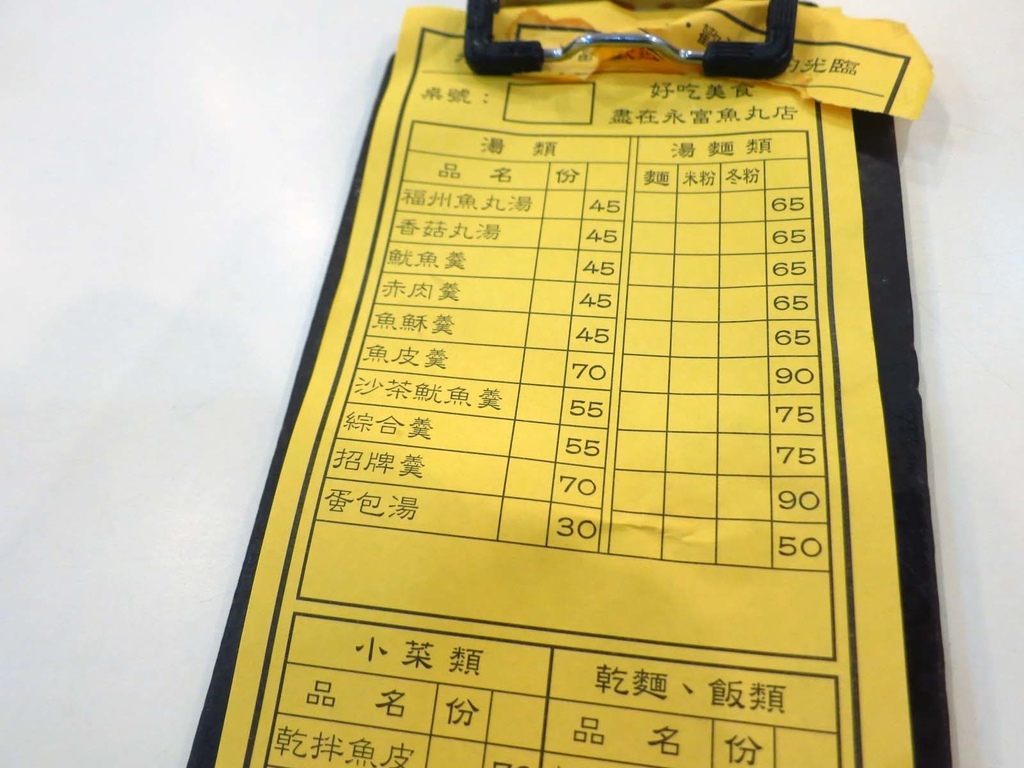 歡迎 的光臨
桌號：
好吃美食
盡在永富魚丸店
湯類 湯麵類
品名 份 麵 米粉 冬粉
福州魚丸湯 45 65
香菇丸湯 45 65
魷魚羹 45 65
赤肉羹 45 65
魚酥羹 45 65
魚皮羹 70 90
沙茶魷魚羹 55 75
綜合羹 55 75
招牌羹 70 90
蛋包湯 30 50
小菜類 乾麵、飯類
品名 份 品名 份
乾拌魚皮